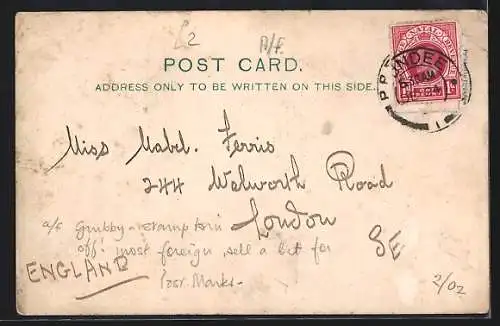 £2 A/F.
POST CARD.
ADDRESS ONLY TO BE WRITTEN ON THIS SIDE.
NATAL
DUNDEE
Miss Mabel. Ferris
244 Walworth Road
London
SE
a/f Grubby + stamp torn
off. most foreign, sell a lot for
Post Marks-
ENGLAND
2/02